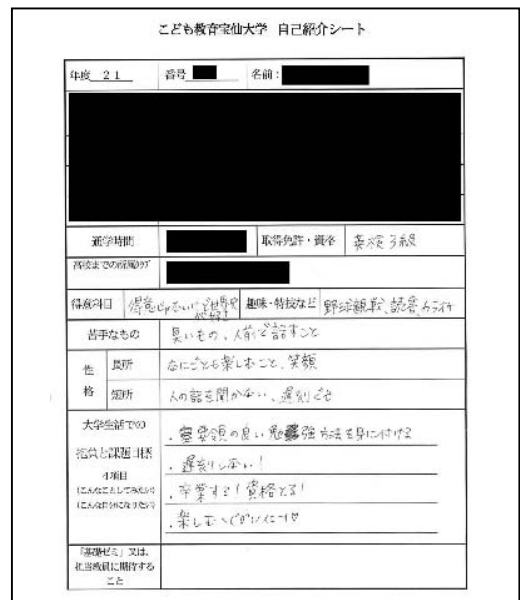 こども教育宝仙大学 自己紹介シート
年度 21 番号 名前:
通学時間 取得免許・資格 英検3級
高校までの所属クラブ
得意科目 得意じゃないけど世界史が好き 趣味・特技など 野球観戦、読書、カラオケ
苦手なもの 臭いもの、人前で話すこと
性格 長所 なにごとも楽しむこと、笑顔
短所 人の話を聞かない、遅刻ぐせ
大学生活での
抱負と課題目標
4項目
(こんなことしてみたい)
(こんな自分になりたい)
・要領の良い勉強方法を身に付ける
・遅刻しない!
・卒業する!資格とる!
・楽しむ
「基礎ゼミ」又は、
担当教員に期待する
こと